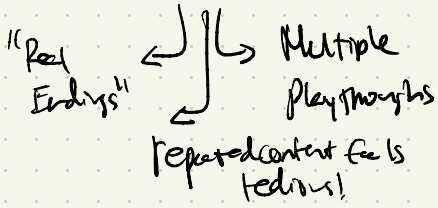 "Real
Endings"
Multiple
Playthroughs
repeated content feels
tedious!